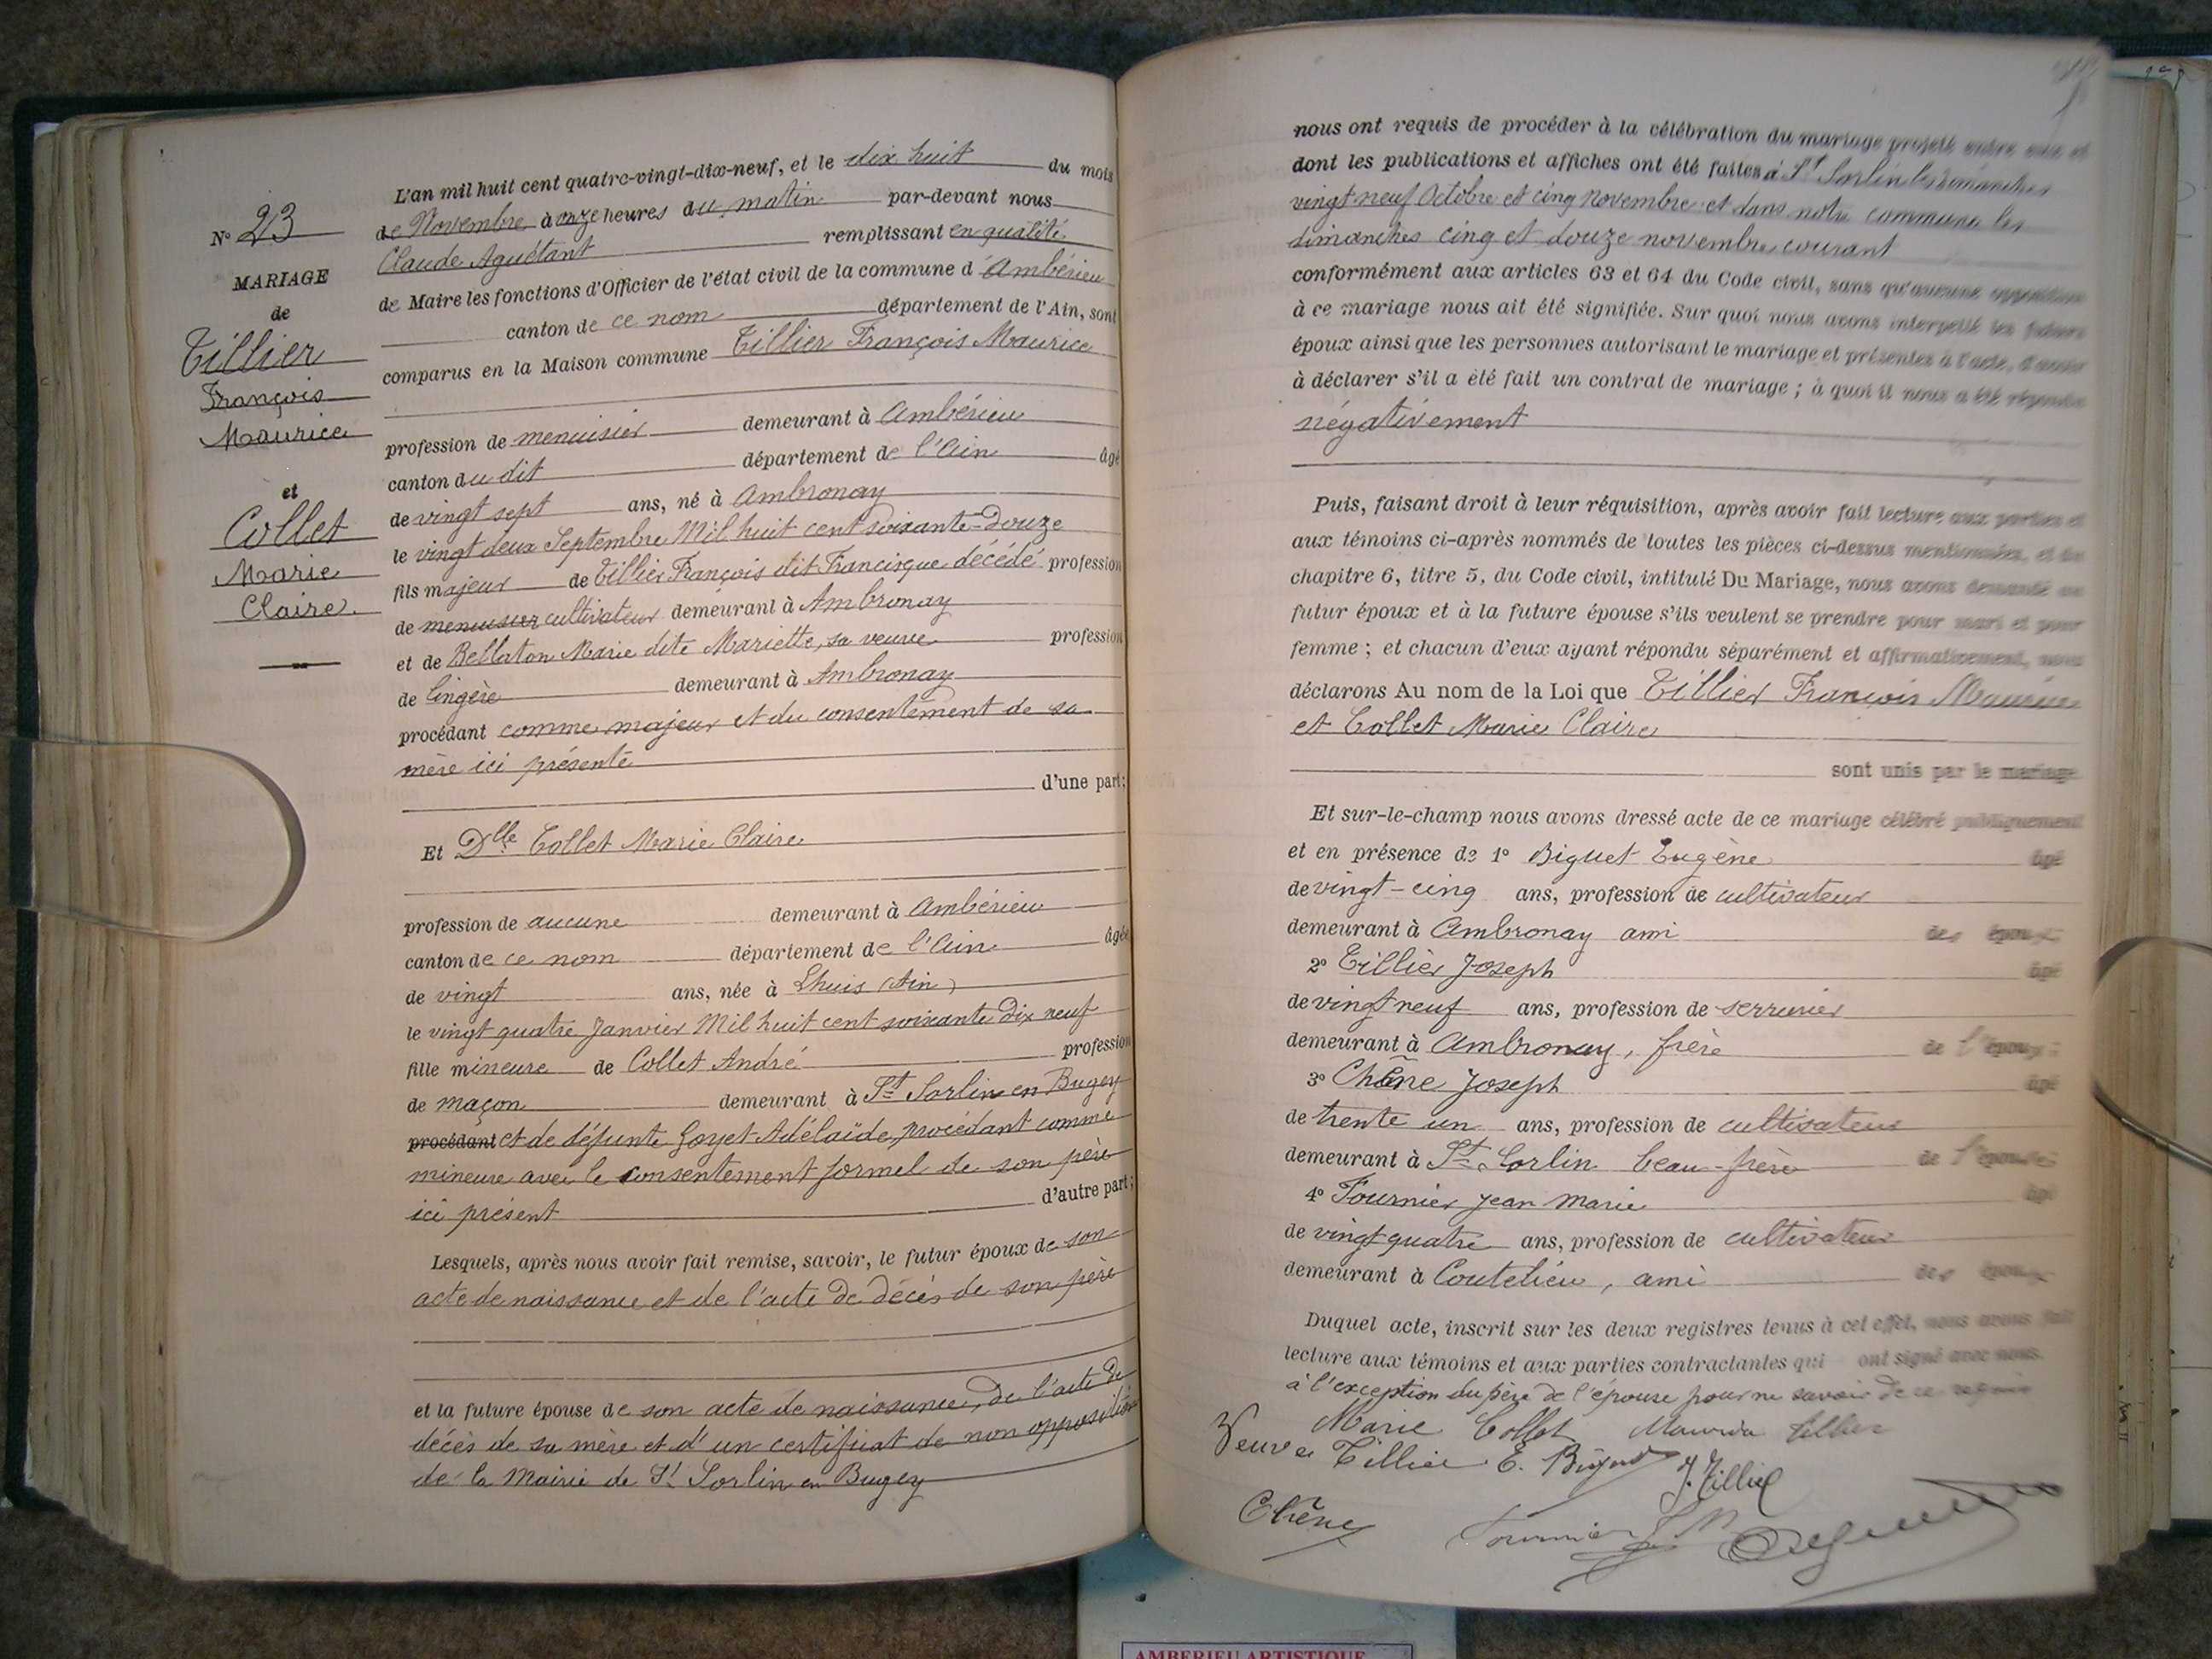 N° 23
MARIAGE
de
Tillier
François
Maurice
et
Collet
Marie
Claire
L'an mil huit cent quatre-vingt-dix-neuf, et le dix huit du mois
de Novembre à onze heures du matin par-devant nous
Claude Aguétant remplissant en qualité
de Maire les fonctions d'Officier de l'état civil de la commune d'Ambérieu
canton de ce nom département de l'Ain, sont
comparus en la Maison commune Tillier François Maurice
profession de menuisier demeurant à Ambérieu
canton du dit département de l'Ain âgé
de vingt sept ans, né à Ambronay
le vingt deux Septembre Mil huit cent soixante-douze
fils majeur de Tillier François dit Francisque décédé profession
de menuisier cultivateur demeurant à Ambronay
et de Bellaton Marie dite Mariette, sa veuve profession
de lingère demeurant à Ambronay
procédant comme majeur et du consentement de sa
mère ici présente
d'une part;
Et Dlle Collet Marie Claire
profession de aucune demeurant à Ambérieu
canton de ce nom département de l'Ain âgée
de vingt ans, née à Lhuis (Ain)
le vingt quatre Janvier Mil huit cent soixante dix neuf
fille mineure de Collet André profession
de maçon demeurant à St Sorlin en Bugey
procédant et de défunte Goyet Adélaïde, procédant comme
mineure avec le consentement formel de son père
ici présent d'autre part;
Lesquels, après nous avoir fait remise, savoir, le futur époux de son
acte de naissance et de l'acte de décès de son père
et la future épouse de son acte de naissance, de l'acte de
décès de sa mère et d'un certificat de non opposition
de la Mairie de St Sorlin en Bugey
nous ont requis de procéder à la célébration du mariage projeté entre eux et
dont les publications et affiches ont été faites à St Sorlin les dimanches
vingt neuf Octobre et cinq Novembre et dans notre commune les
dimanches cinq et douze novembre courant
conformément aux articles 63 et 64 du Code civil, sans qu'aucune opposition
à ce mariage nous ait été signifiée. Sur quoi nous avons interpellé les futurs
époux ainsi que les personnes autorisant le mariage et présentes à l'acte, d'avoir
à déclarer s'il a été fait un contrat de mariage; à quoi il nous a été répondu
négativement
Puis, faisant droit à leur réquisition, après avoir fait lecture aux parties et
aux témoins ci-après nommés de toutes les pièces ci-dessus mentionnées, et du
chapitre 6, titre 5, du Code civil, intitulé Du Mariage, nous avons demandé au
futur époux et à la future épouse s'ils veulent se prendre pour mari et pour
femme; et chacun d'eux ayant répondu séparément et affirmativement, nous
déclarons Au nom de la Loi que Tillier François Maurice
et Collet Marie Claire
sont unis par le mariage.
Et sur-le-champ nous avons dressé acte de ce mariage célébré publiquement
et en présence de 1° Biguet Eugène âgé
de vingt-cinq ans, profession de cultivateur
demeurant à Ambronay ami des époux
2° Tillier Joseph âgé
de vingt neuf ans, profession de serrurier
demeurant à Ambronay, frère de l'époux;
3° Chêne Joseph âgé
de trente un ans, profession de cultivateur
demeurant à St Sorlin beau-frère de l'épouse;
4° Fournier Jean Marie âgé
de vingt quatre ans, profession de cultivateur
demeurant à Coutelieu, ami des époux
Duquel acte, inscrit sur les deux registres tenus à cet effet, nous avons fait
lecture aux témoins et aux parties contractantes qui ont signé avec nous.
à l'exception du père de l'épouse pour ne savoir de ce requis
Marie Collet Maurice Tillier
Veuve Tillier E. Biguet J. Tillier
Chêne Fournier J M
AMBERIEU ARTISTIQUE